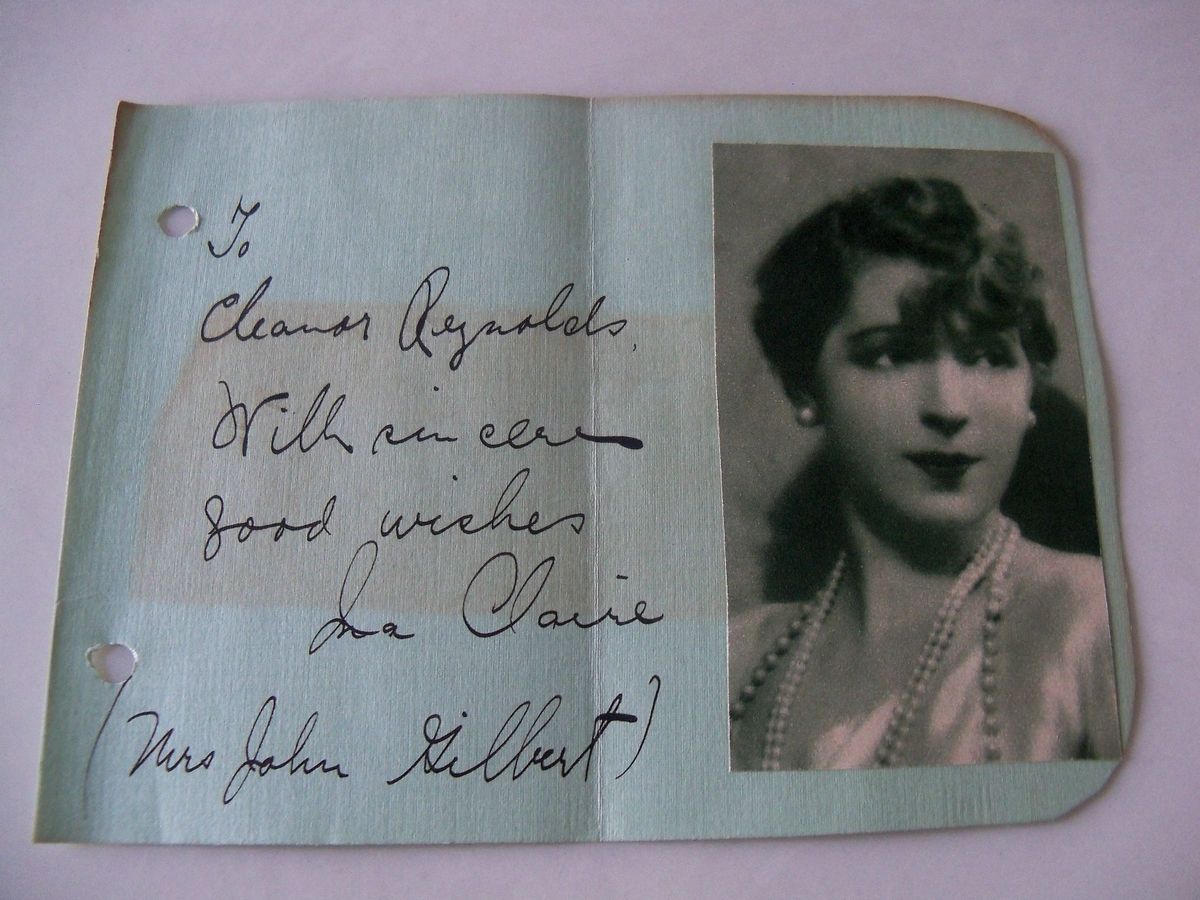 To
Eleanor Reynolds,
With sincere
good wishes
Ina Claire
(Mrs John Gilbert)